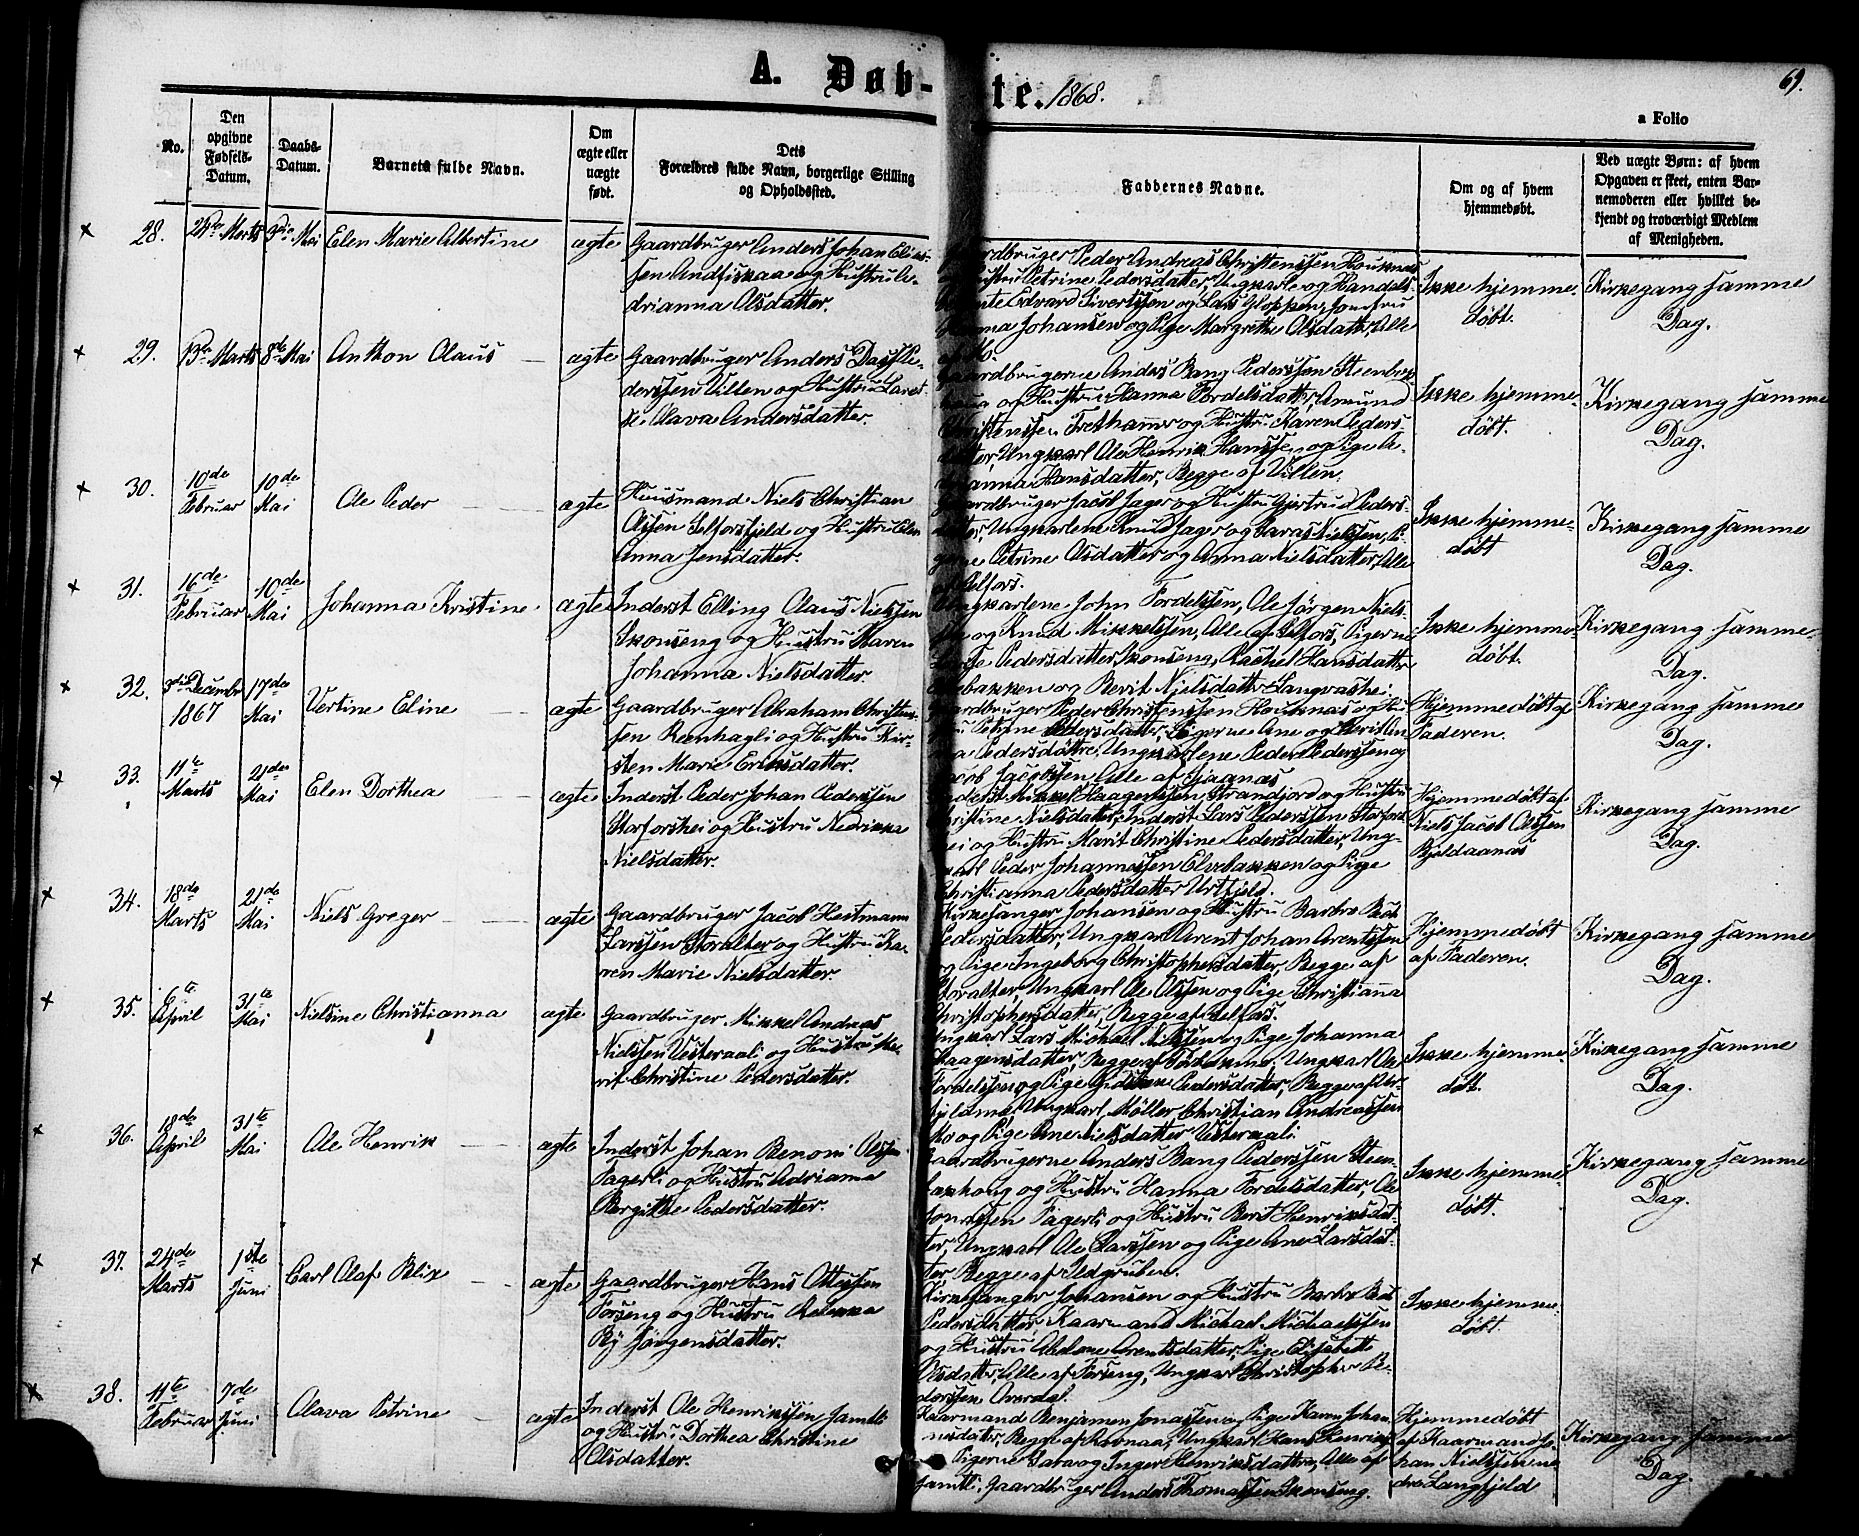 A. Døb-
te. 1868.
69.
a Folio
No.
Den
opgivne
Fødsels-
Datum.
Daabs-
Datum.
Barnets fulde Navn.
Om
ægte eller
uægte
født.
Dets
Forældres fulde Navn, borgerlige Stilling
og Opholdssted.
Faddernes Navne.
Om og af hvem
hjemmedøbt.
Ved uægte Børn: af hvem
Opgaven er skeet, enten Bar-
nemoderen eller hvilket be-
kjendt og troværdigt Medlem
af Menigheden.
28.
Marts
Mai
Elen Marie Albertine
ægte
Gaardbruger Anders Johan Elias-
sen Andfiskaa og Hustru A-
drianna Olsdatter.
Peder Andreas Christenssen
Hustru Petrine Pedersdatter, Ungkarle og Handels-
Edvard Sivertssen og Lars Gloppen, Jomfru
Johansen og Pige Margrethe Olsdatter, Alle
Ikke hjemme-
døbt.
Kirkegang samme
Dag.
29.
13de Marts
8de Mai
Anthon Olaus
ægte
Gaardbruger Anders Dass Pe-
derssen Villen og Hustru Laret-
Olava Andersdatter.
Gaardbrugerne Anders Bang Pederssen Steenbæk-
og Hustru Hanna Tordelsdatter, Amund
Christenssen Frethammer og Hustru Karen Peders-
datter, Ungkarl Ole Henrik Hanssen og Pige
Hansdatter, Begge af Villen.
Ikke hjemme-
døbt.
Kirkegang samme
Dag.
30.
10de
Februar
10de
Mai
Ole Peder
ægte
Huusmand Niels Christian
Olssen Selforsfjeld og Hustru Elen
Anna Jensdatter.
Gaardbruger Jacob Jager og Hustru Gjertrud Peders-
datter, Ungkarlene Knud Jager og Nielssen, Pi-
gerne Petrine Olsdatter og Anna Nielsdatter, Alle
af Selfors.
Ikke hjemme-
døbt
Kirkegang samme
Dag.
31.
16de
Februar
10de
Mai
Johanna Kristine
ægte
Inderst Elling Olaus Nielssen
Skonseng og Hustru Maren
Johanna Nielsdatter
Ungkarlene John Tordelssen, Ole Jørgen Niels-
sen og Knud Mikkelssen, Alle af Selfors, Pigerne
Pedersdatter Skonseng, Rachel Hansdatter
og Berit Nielsdatter Langvashei.
Ikke hjemme-
døbt.
Kirkegang samme
Dag.
32.
3die Decembr
1867
17de
Mai
Vertine Eline
ægte
Gaardbruger Abraham Christens-
sen Renhagli og Hustru Kir-
sten Marie Eriksdatter.
Gaardbruger Peder Christenssen og Hu-
stru Petrine Pedersdatter, Pigerne Ane og
Pedersdatter, Ungkarlene Peder Pederssen og
Jacob Jacobssen Alle af
Hjemmedøbt af
Faderen.
Kirkegang samme
Dag.
33.
11te
Marts
21de
Mai
Elen Dorthea
ægte
Inderst Peder Johan Pederssen
Storforshei og Hustru Nedrikka
Nielsdatter.
Inderst Mikkel Haagenssen Strandjord og Hustru
Christine Nielsdatter, Inderst Lars Pederssen Storfors-
hei og Hustru Marit Christine Pedersdatter, Ung-
karl Peder Johannessen Elvebakken og Pige
Christianna Pedersdatter Urtfjeld.
Hjemmedøbt af
Niels Jacob Olssen
Bjeldaanæs
Kirkegang samme
Dag.
34.
18de
Marts
21de
Mai
Niels Greger
ægte
Gaardbruger Jacob Heitmann
Larssen Storalter og Hustru Ka-
ren Marie Nielsdatter.
Kirkesanger Johansen og Hustru Barbro
Pedersdatter, Ungkarl Arent Johan Arentssen
og Pige Ingeborg Christophersdatter, Begge af
Storalter, Ungkarl Ole Olssen og Pige Christianna
Christophersdatter, Begge af Selfors.
Hjemmedøbt
af Faderen.
Kirkegang samme
Dag.
35.
6te
April
31te
Mai
Nielsine Christianna
ægte
Gaardbruger Mikkel Andreas
Nielssen Vesteraali og Hustru Be-
rit Christine Pedersdatter.
Ungkarl Lars Michael Nielssen og Pige Johanna
Haagensdatter, Begge af, Ungkarl Ole
Tordelssen og Pige Pedersdatter, Begge af
Ungkarl Møller Christian Andreassen
Mo og Pige Ane Nielsdatter Vesteraali
Ikke hjemme-
døbt.
Kirkegang samme
Dag.
36.
18de
April
31te
Mai
Ole Henrik
ægte
Inderst Johan Benoni Olssen
Fagerli og Hustru Adrianna
Bergitthe Pedersdatter.
Gaardbrugerne Anders Bang Pederssen Steen-
og Hustru Hanna Tordelsdatter, Ole
Jonassen Fagerli og Hustru Berit Henriksdat-
ter, Ungkarl Ole Larssen og Pige Ane Larsdat-
ter Begge af Ildgruben.
Ikke hjemme-
døbt.
Kirkegang samme
Dag.
37.
24de
Marts
1ste
Juni
Carl Olaf Blix
ægte
Gaardbruger Hans Ottessen
Forseng og Hustru Rebekka
By Jørgensdatter.
Kirkesanger Johansen og Hustru Barbro
Pedersdatter, Kaarmand Michael Michaelssen
og Hustru Arentsdatter, Pige Elisabeth
Olsdatter, Alle af Forseng, Ungkarl Christopher Pe-
derssen Overdal.
Ikke hjemme-
døbt.
38.
11te
Februar
7de
Juni
Olava Petrine
ægte
Inderst Ole Henrikssen Jamtli
og Hustru Dorthea Christine
Olsdatter.
Kaarmand Benjamin Jonassen og Pige Karen Johan-
nisdatter, Begge af Ravnaa, Ungkarl Hans Henrikss.
Pigerne Sara og Inger Henriksdatter, Alle af
Jamtli, Gaardbruger Anders Thomassen Skonseng.
Hjemmedøbt
af Kaarmand Jo-
han Nielssen
Langfjeld
Kirkegang samme
Dag.